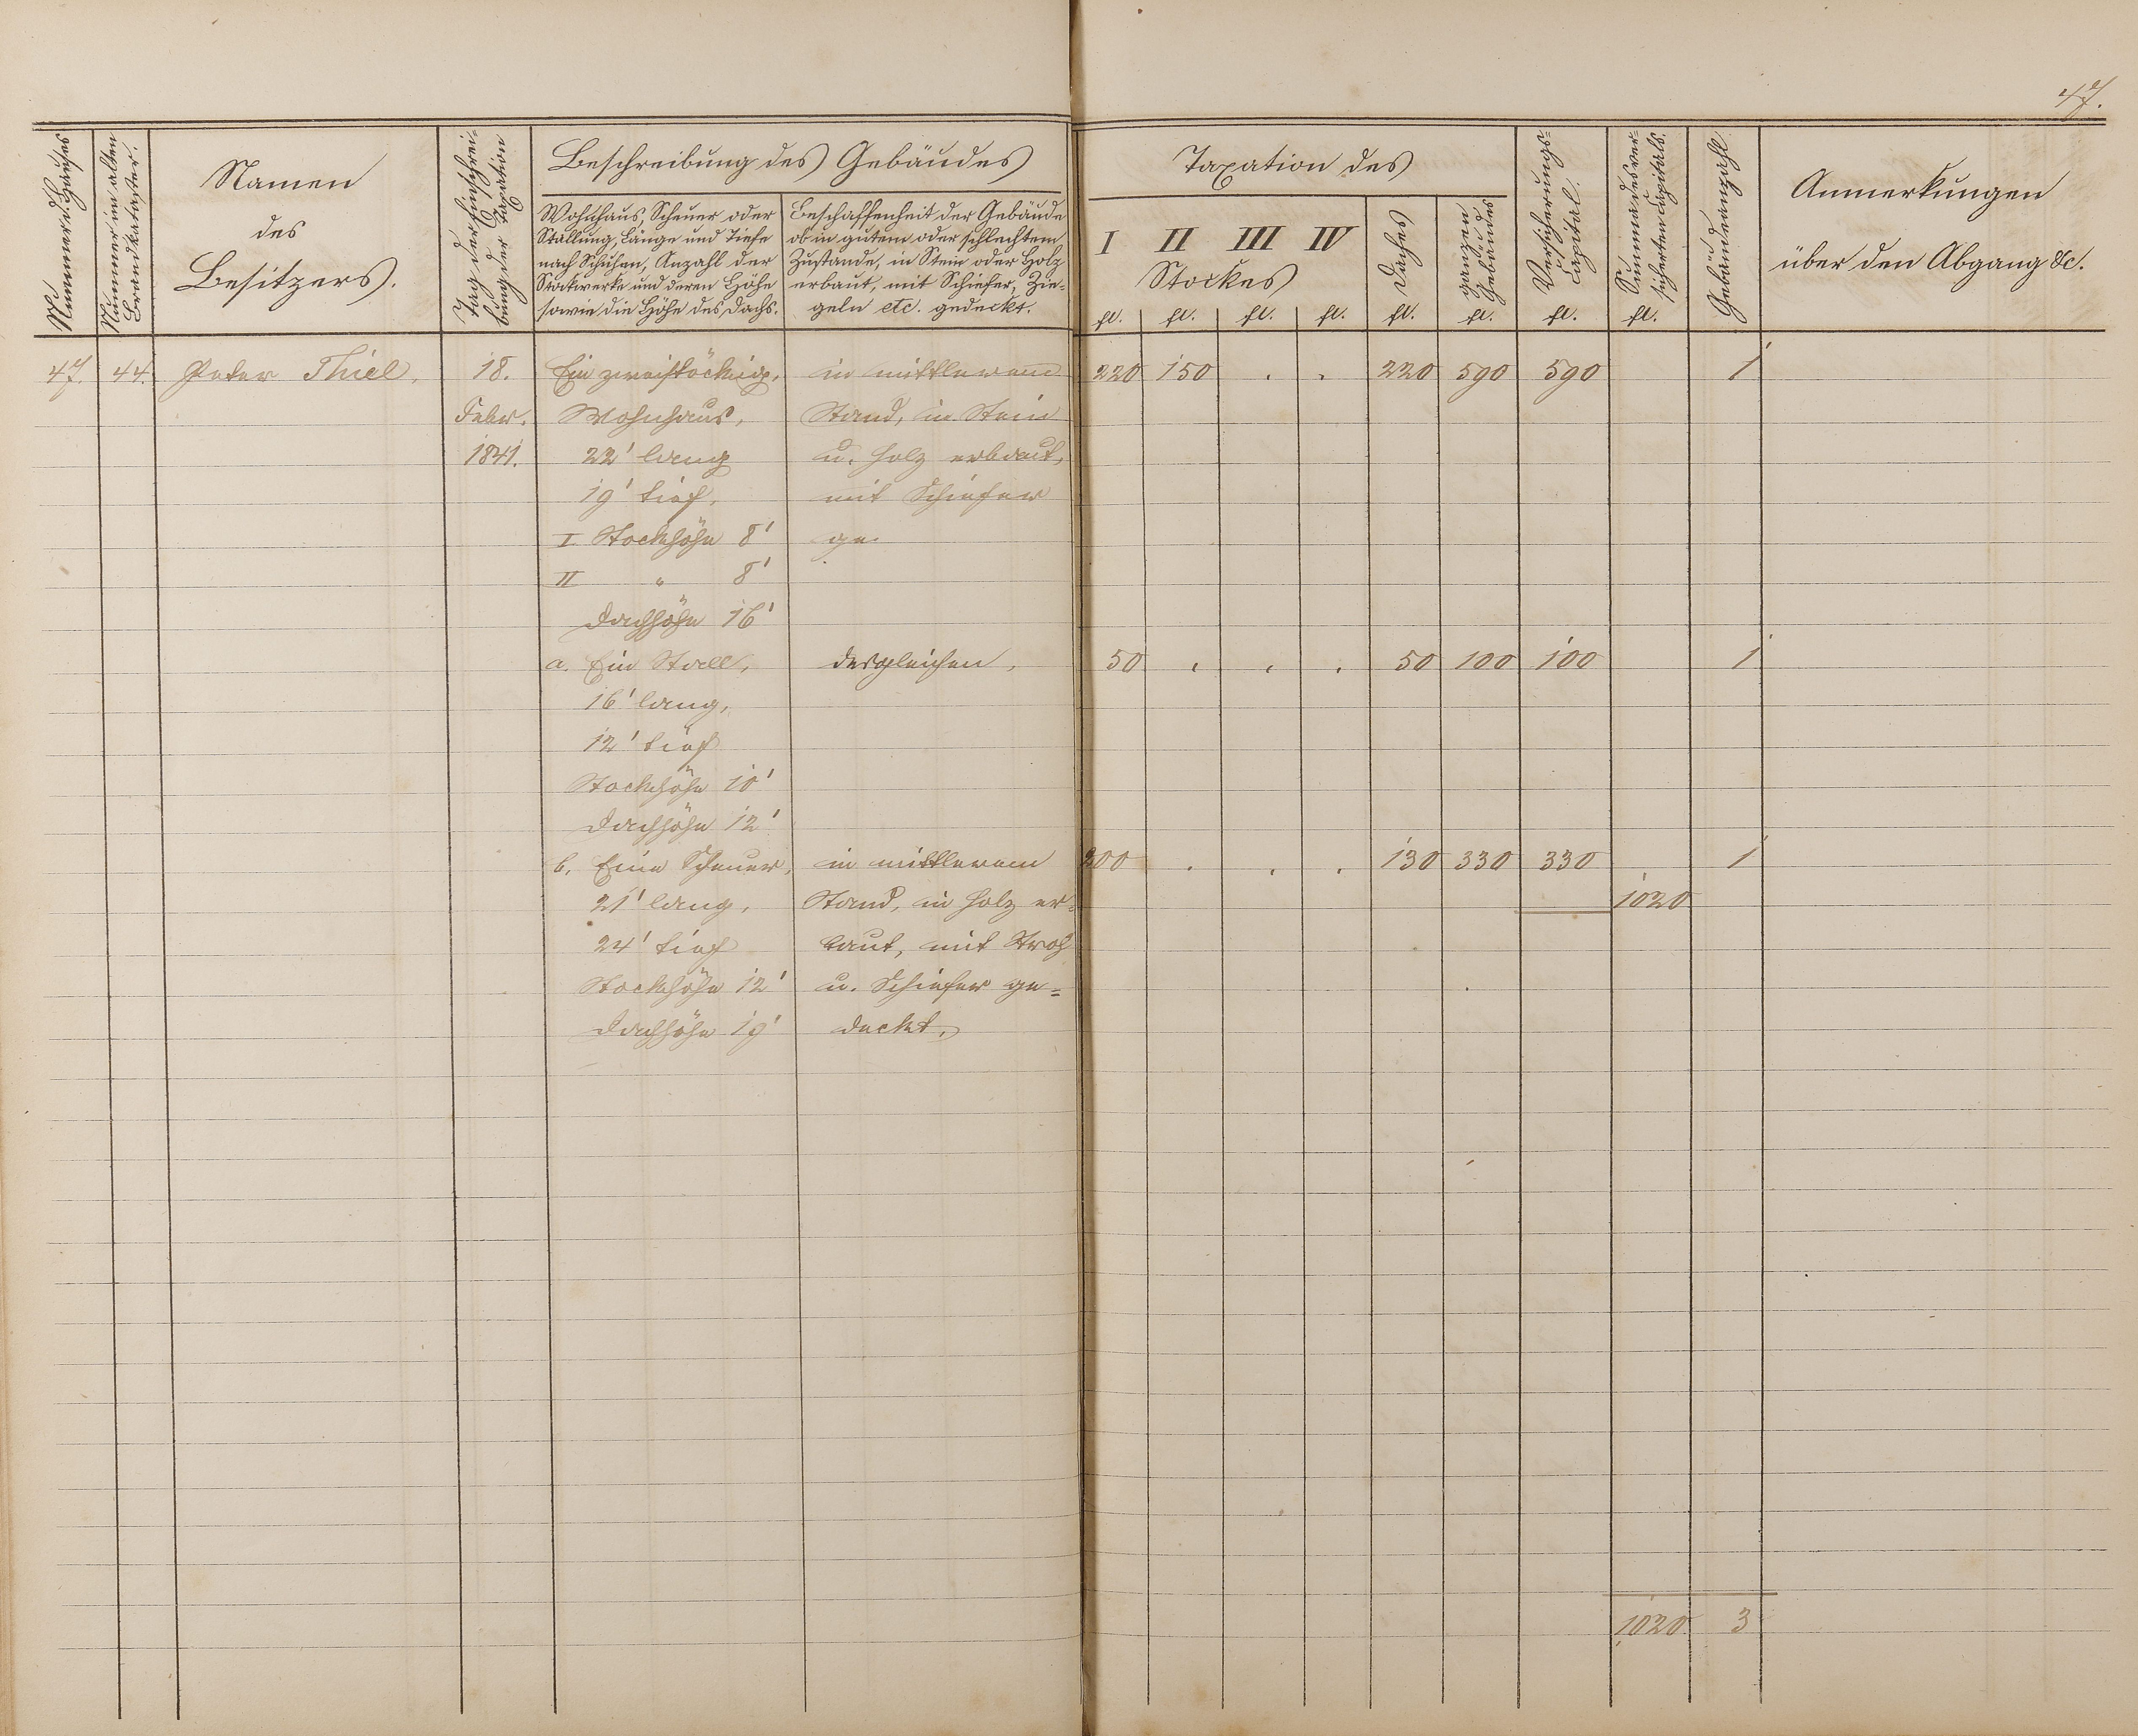 47.
Nummer d. Hauses
Nummer im alten
Brandkataster.
Namen
des
Besitzers.
Tag der Einschrei-
bung der Taxation
Beschreibung des Gebäudes
Wohnhaus, Scheuer oder
Stallung, Länge und Tiefe
nach Schuhen, Anzahl der
Stockwerke und deren Höhe
sowie die Höhe des Dachs.
Beschaffenheit der Gebäude
ob in gutem oder schlechtem
Zustande, in Stein oder Holz
erbaut, mit Schiefer, Zie-
geln etc. gedeckt.
Taxation des
I II III IV
Stockes
Daches
ganzen
Gebäudes
Versicherungs-
Capital.
Summa des ver-
sicherten Capitals.
Gebäudeanzahl
Anmerkungen
über den Abgang &c.
fl. fl. fl. fl. fl. fl. fl. fl.
47. 44. Peter Thiel, 18. Ein zweistöckig. in mittlerem 220 150 . . 220 590 590 1
Febr. Wohnhaus, Stand, in Stein
1841. 22' lang u. Holz erbaut,
19' tief, mit Schiefer
I Stockhöhe 8' ge.
II " 8'
Dachhöhe 16'
a. Ein Stall, desgleichen, 50 . . . 50 100 100 1
16' lang,
12' tief
Stockhöhe 10'
Dachhöhe 12'
b. Eine Scheuer, in mittlerem 200 . . . 130 330 330 1
21' lang, Stand, in Holz er- 1020
24' tief baut, mit Stroh
Stockhöhe 12' u. Schiefer ge-
Dachhöhe 19' deckt.
1020 3